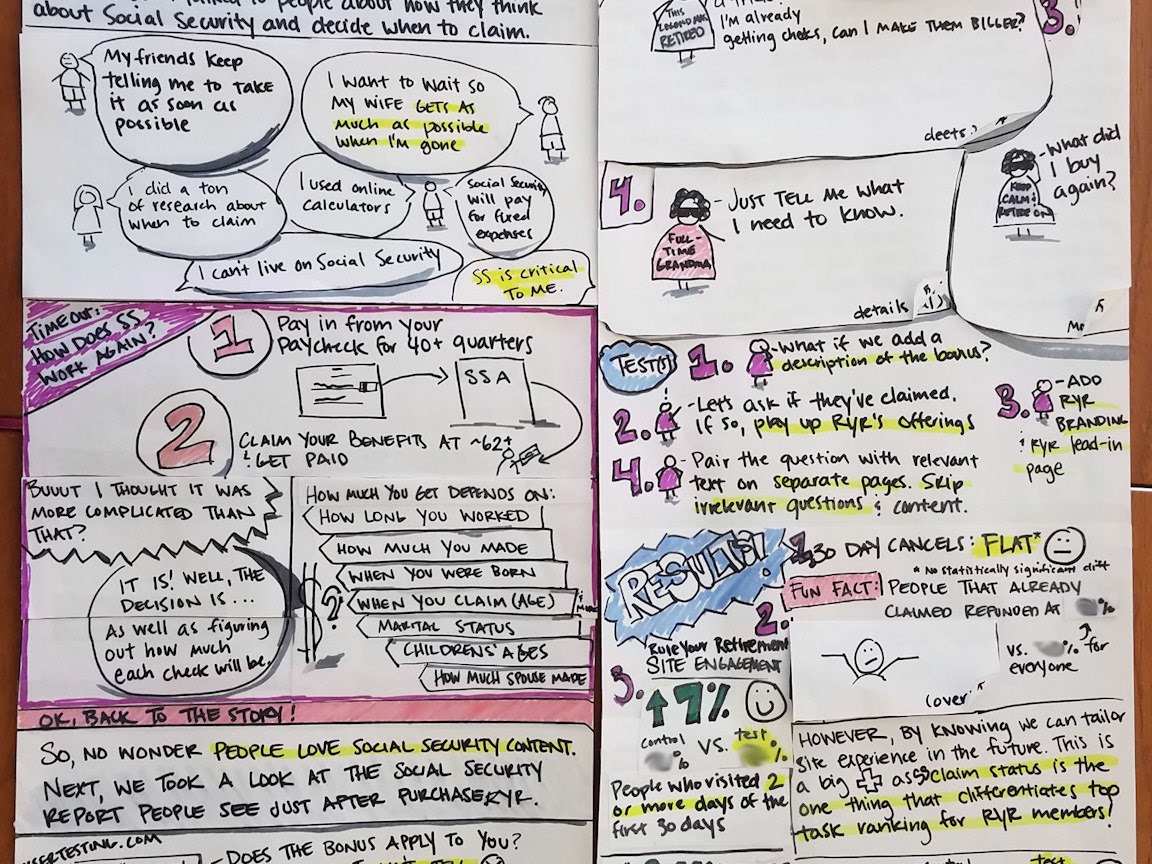 talked to people about how they think
about Social Security and decide when to claim.
My friends keep
telling me to take
it as soon as
possible
I want to wait so
my wife gets as
much as possible
when I'm gone
I did a ton
of research about
when to claim
I used online
calculators
Social Security
will pay
for fixed
expenses
I can't live on Social Security
SS is critical
to me.
Time out:
How does SS
work again?
1
Pay in from your
Paycheck for 40+ quarters
SSA
2
Claim your benefits at ~62+
& get paid
Buuut I thought it was
more complicated than
that?
It is! Well, the
decision is...
As well as figuring
out how much
each check will be.
$?
How much you get depends on:
How long you worked
How much you made
When you were born
When you claim (age)
& more
Marital status
Children's ages
How much spouse made
OK, back to the story!
So, no wonder people love Social Security content.
Next, we took a look at the Social Security
report people see just after purchase RYR.
usertesting.com
- Does the bonus apply to you?
This
retired
I'm already
getting cheks, can I make them bigger?
3.
deets?
4.
Full-
time
Grandma
- Just tell me what
I need to know.
details
Keep
calm &
retire on
- What did
I buy
again?
Test(s)
1.
- What if we add a
description of the bonus?
2.
- Let's ask if they've claimed.
If so, play up RYR's offerings
3.
- Add
RYR
branding
& RYR lead-in
page
4.
- Pair the question with relevant
text on separate pages. Skip
irrelevant questions & content.
Results!
30 day cancels: FLAT*
* No statistically significant diff
2.
Fun fact:
People that already
claimed refunded at %
vs. % for
everyone
cover
3.
Rule Your Retirement
site engagement
↑7%
control
%
vs.
test
%
People who visited 2
or more days of the
first 30 days
However, by knowing we can tailor
site experience in the future. This is
a big + as SS claim status is the
one thing that differentiates top
task ranking for RYR members!
test